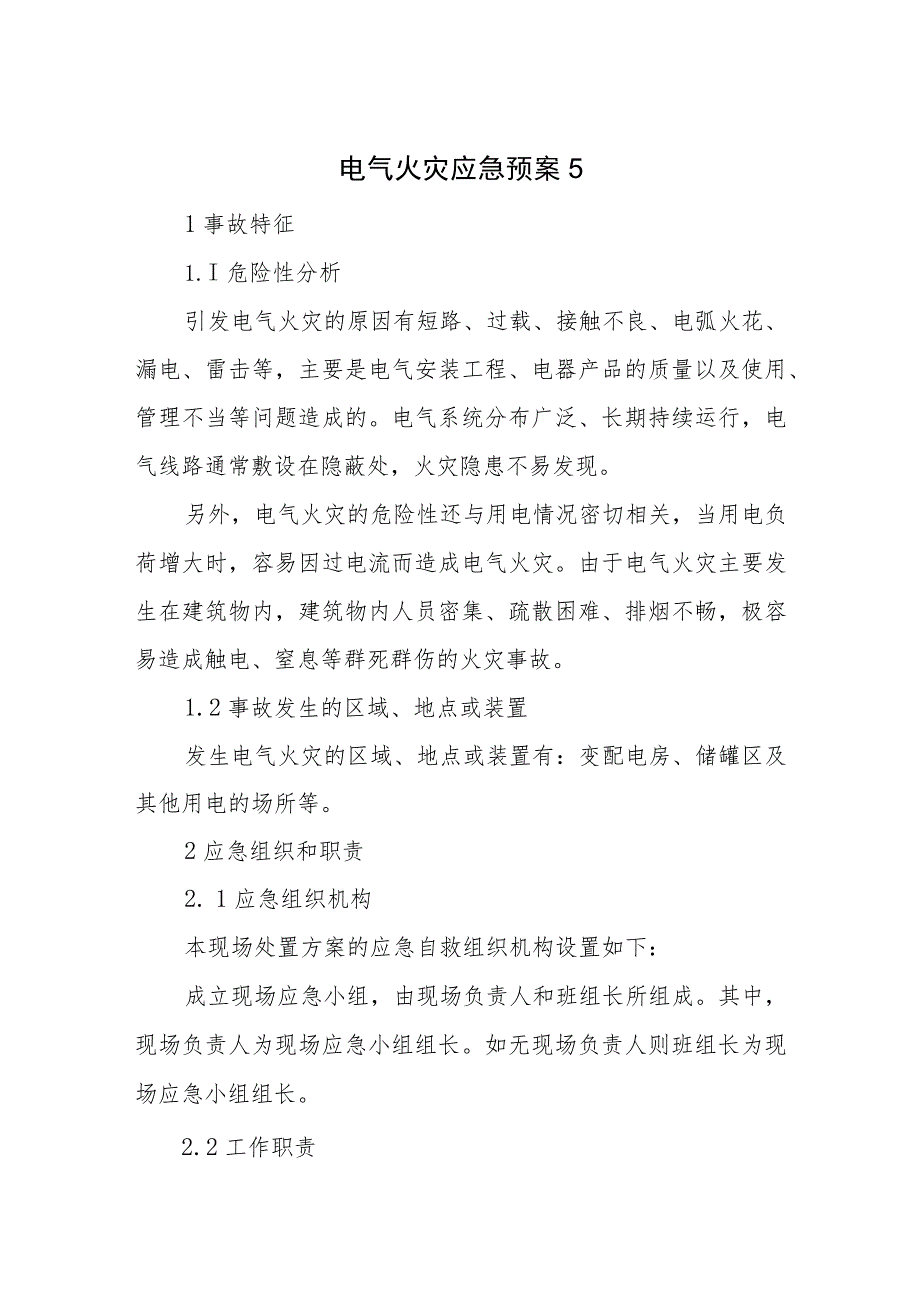 电气火灾应急预案 5
1 事故特征
1.I 危险性分析
引发电气火灾的原因有短路、过载、接触不良、电弧火花、
漏电、雷击等，主要是电气安装工程、电器产品的质量以及使用、
管理不当等问题造成的。电气系统分布广泛、长期持续运行，电
气线路通常敷设在隐蔽处，火灾隐患不易发现。
另外，电气火灾的危险性还与用电情况密切相关，当用电负
荷增大时，容易因过电流而造成电气火灾。由于电气火灾主要发
生在建筑物内，建筑物内人员密集、疏散困难、排烟不畅，极容
易造成触电、窒息等群死群伤的火灾事故。
1.2 事故发生的区域、地点或装置
发生电气火灾的区域、地点或装置有：变配电房、储罐区及
其他用电的场所等。
2 应急组织和职责
2. 1 应急组织机构
本现场处置方案的应急自救组织机构设置如下：
成立现场应急小组，由现场负责人和班组长所组成。其中，
现场负责人为现场应急小组组长。如无现场负责人则班组长为现
场应急小组组长。
2.2 工作职责